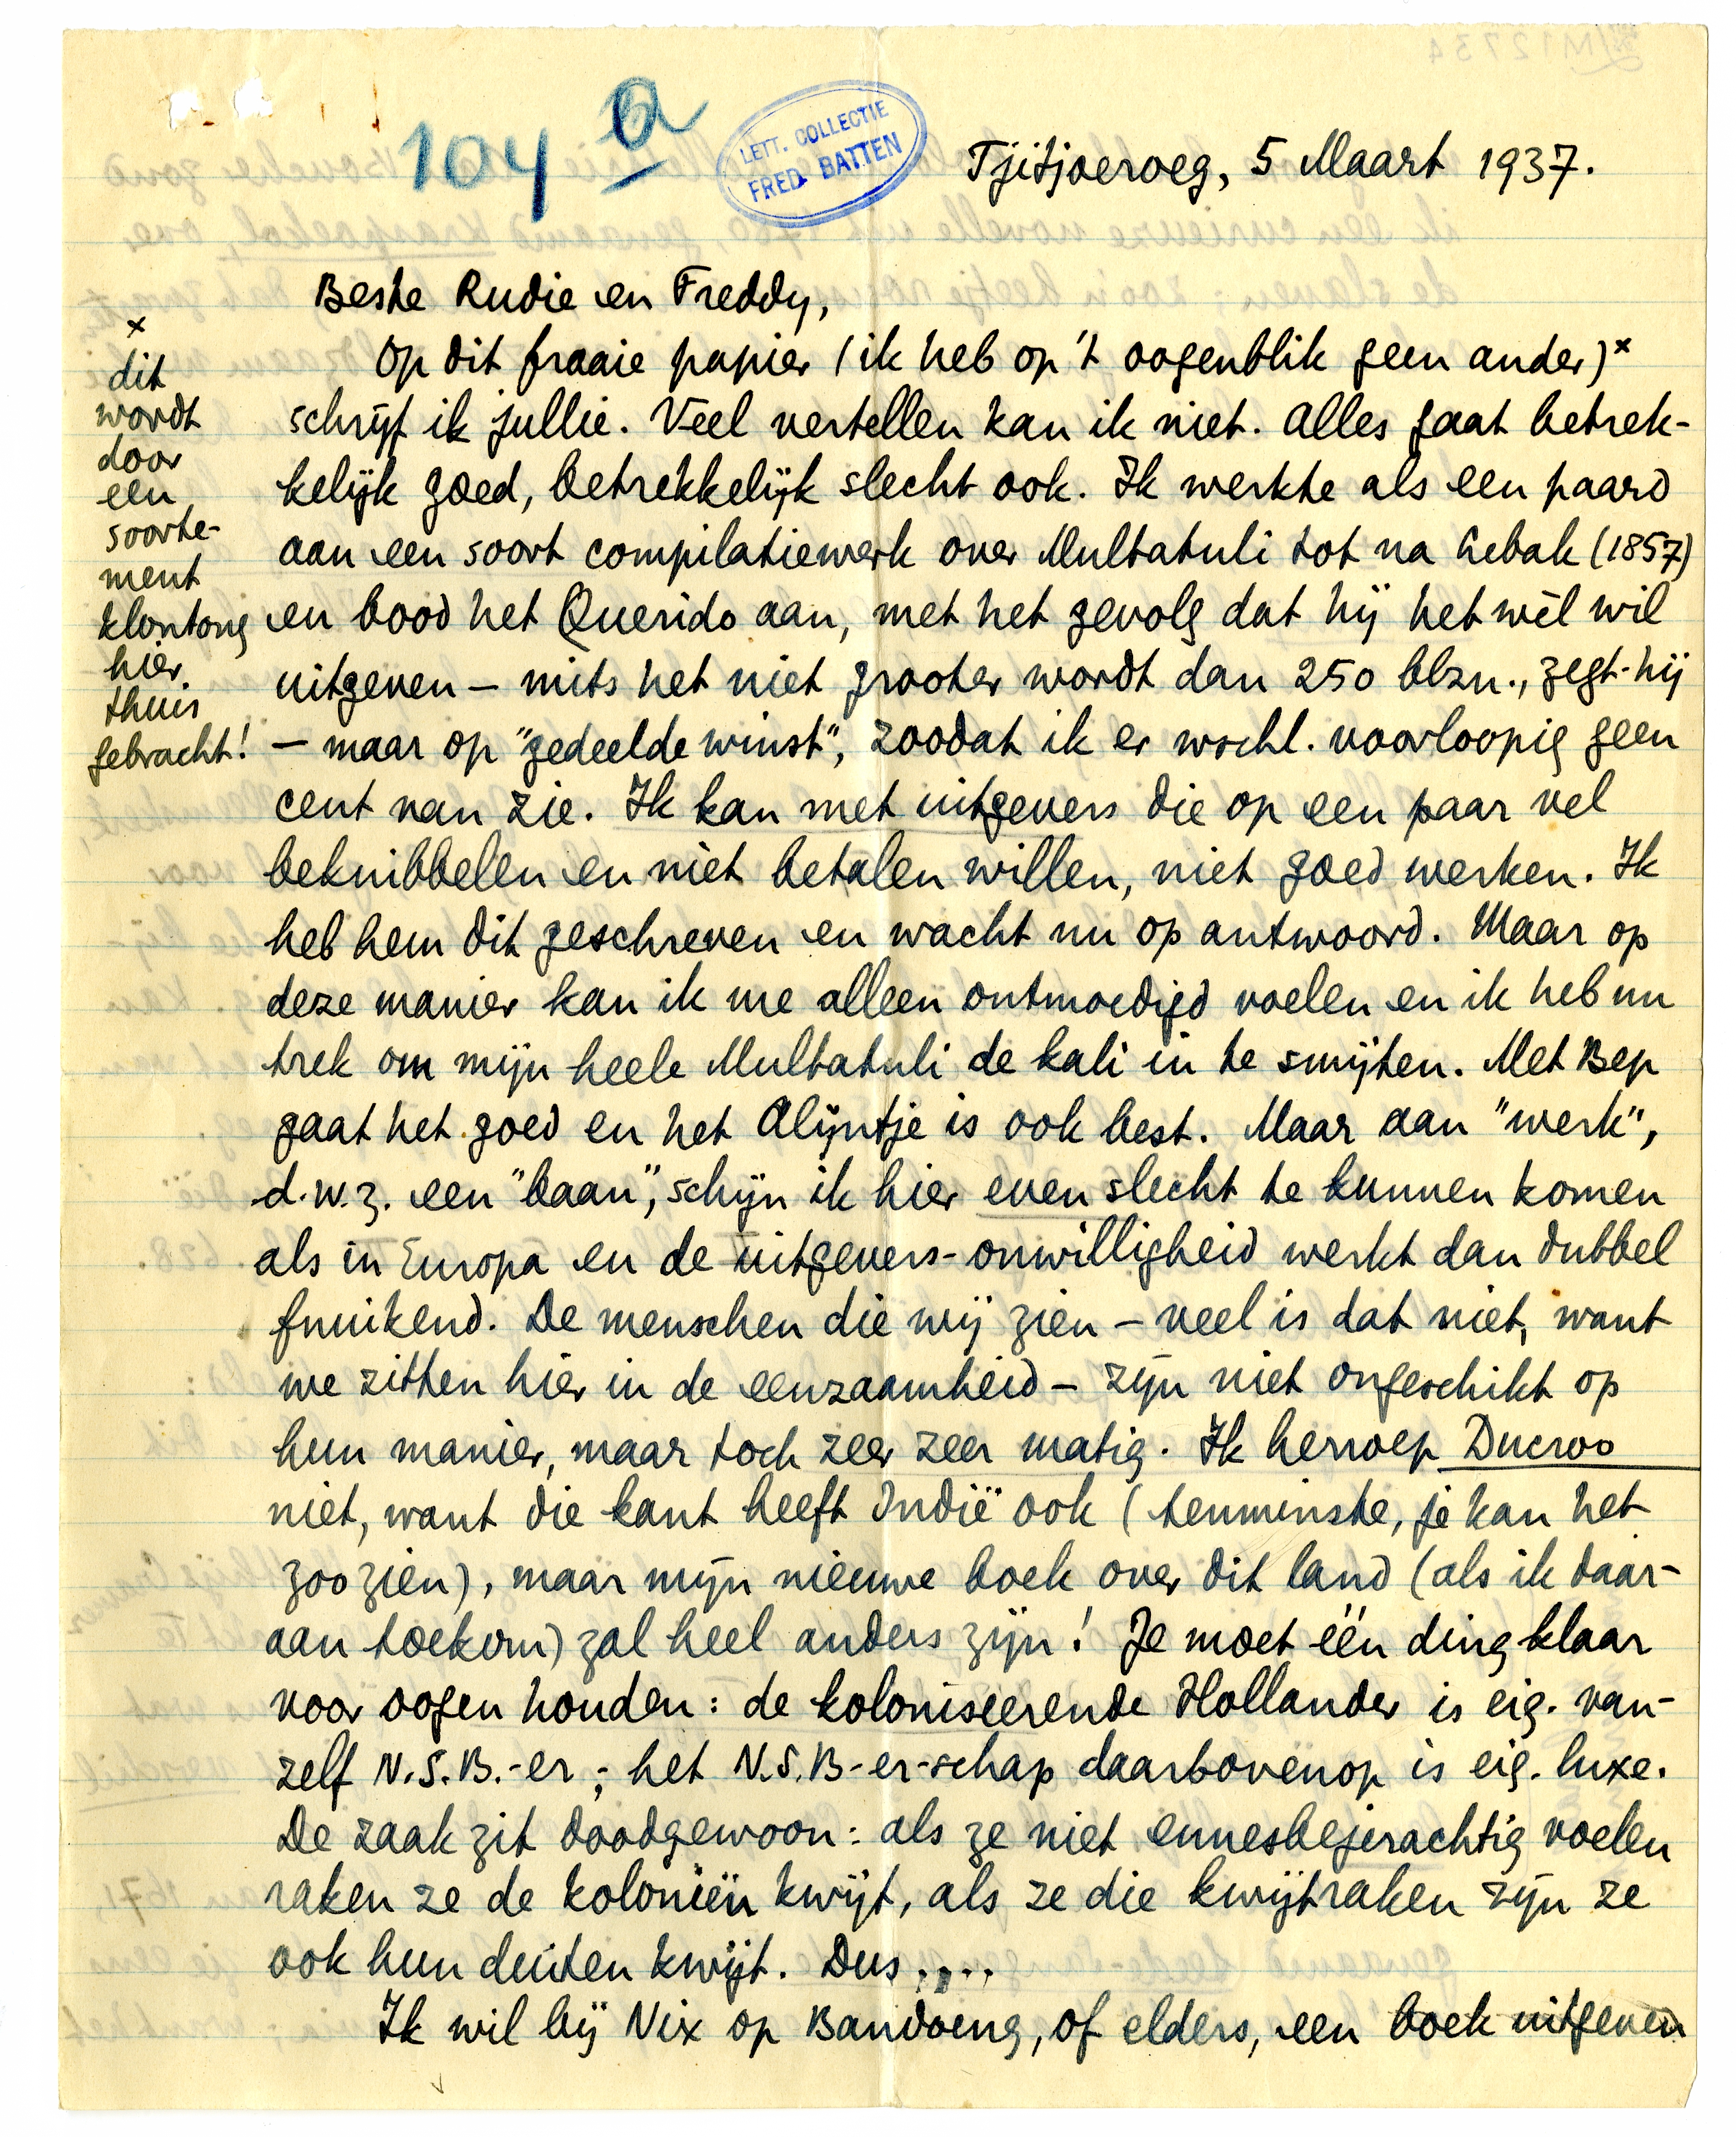 104 a
LETT. COLLECTIE
FRED. BATTEN
Tjitjoeroeg, 5 Maart 1937.
Beste Rudie en Freddy,
Op dit fraaie papier (ik heb op 't oogenblik geen ander)x
schrijf ik jullie. Veel vertellen kan ik niet. Alles gaat betrek-
kelijk goed, betrekkelijk slecht ook. Ik werkte als een paard
aan een soort compilatiewerk over Multatuli tot na Lebak (1857)
en bood het Querido aan, met het gevolg dat hij het wèl wil
uitgeven – mits het niet grooter wordt dan 250 blzn., zegt hij
– maar op "gedeelde winst", zoodat ik er wschl. voorloopig geen
cent van zie. Ik kan met uitgevers die op een paar vel
beknibbelen en niet betalen willen, niet goed werken. Ik
heb hem dit geschreven en wacht nu op antwoord. Maar op
deze manier kan ik me alleen ontmoedigd voelen en ik heb nu
trek om mijn heele Multatuli de kali in te smijten. Met Bep
gaat het goed en het Alijntje is ook best. Maar aan "werk",
d.w.z. een "baan", schijn ik hier even slecht te kunnen komen
als in Europa en de uitgevers-onwilligheid werkt dan dubbel
fnuikend. De menschen die wij zien – veel is dat niet, want
we zitten hier in de eenzaamheid – zijn niet ongeschikt op
hun manier, maar toch zeer zeer matig. Ik herroep Ducroo
niet, want die kant heeft Indië ook (tenminste, je kan het
zoo zien), maar mijn nieuwe boek over dit land (als ik daar-
aan toekom) zal heel anders zijn! Je moet één ding klaar
voor oogen houden: de koloniseerende Hollander is eig. van-
zelf N.S.B.-er; - het N.S.B-er-schap daarbovenop is eig. luxe.
De zaak zit doodgewoon: als ze niet ennesbejerachtig voelen
raken ze de koloniën kwijt, als ze die kwijtraken zijn ze
ook hun duiten kwijt. Dus....
Ik wil bij Nix op Bandoeng, of elders, een boek uitgeven
x
dit
wordt
door
een
soorte-
ment
klontong
hier
thuis
gebracht!